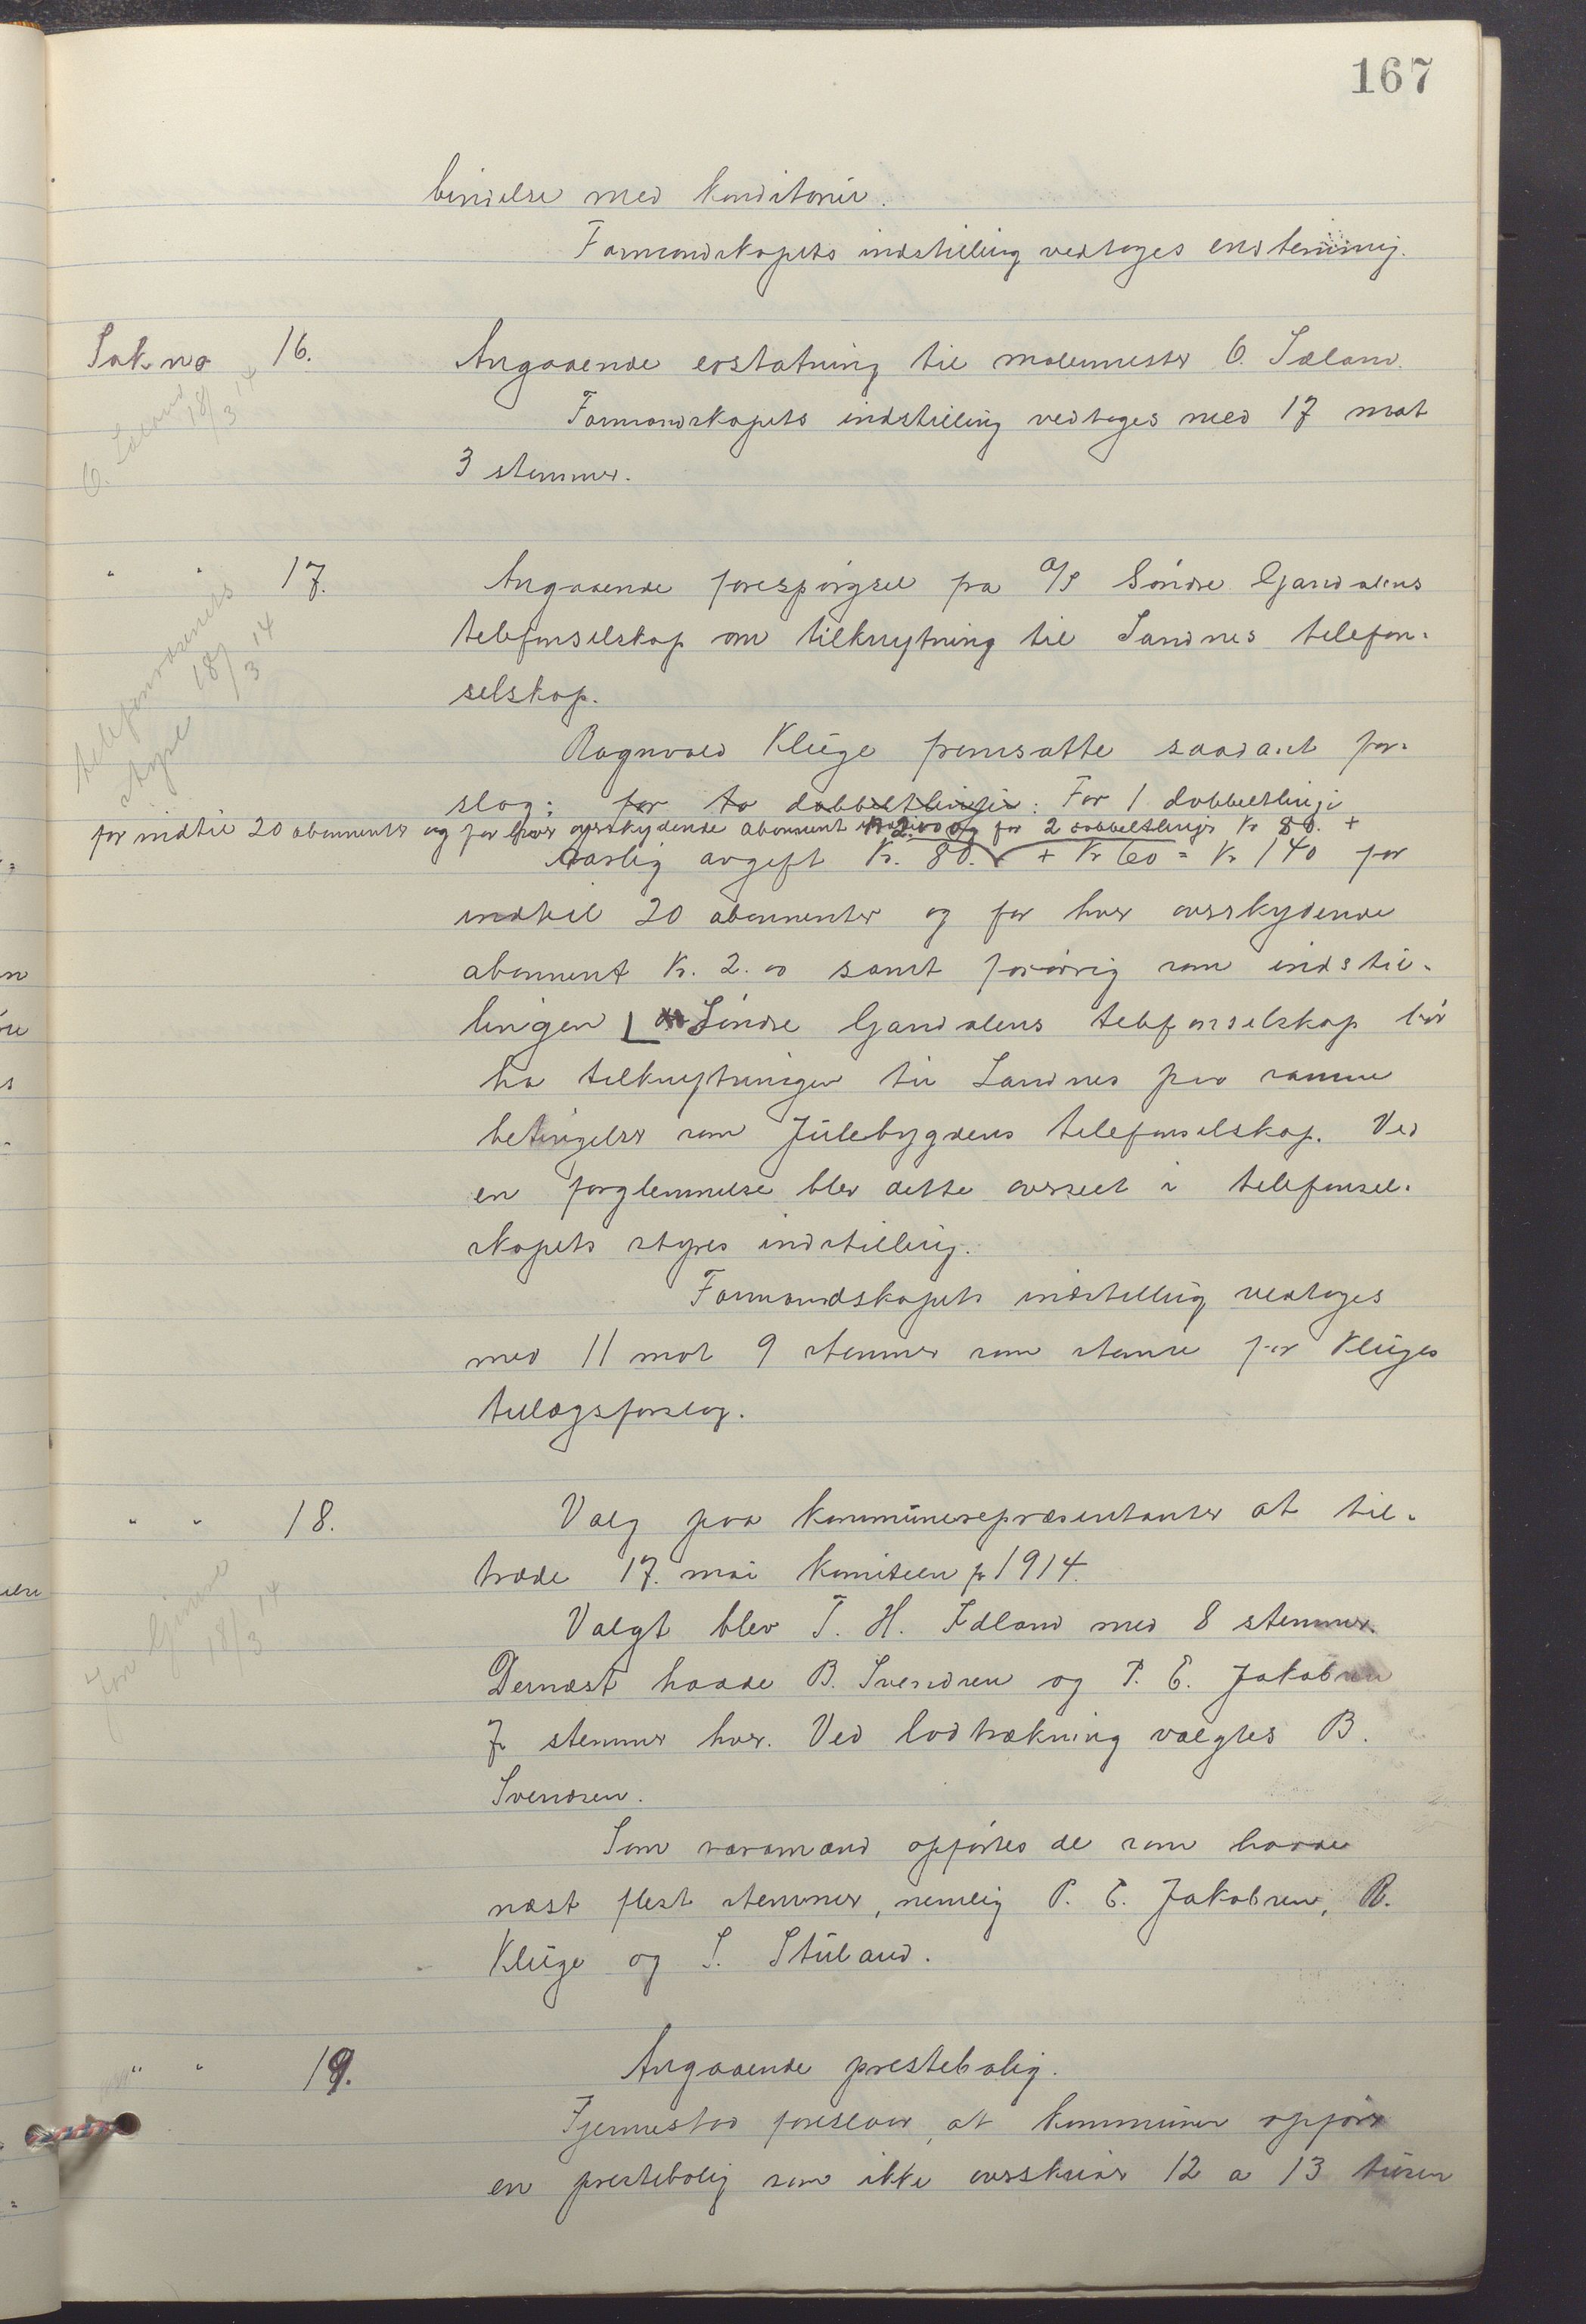 167
bindelse med konditorie.
Formandskapets indstilling vedtages enstemmig.
Sak no 16. Angaaende erstatning til malermester O. Sæland.
O. Sæland 18/3 14
Formandskapets indstilling vedtages med 17 mot
3 stemmer.
" " 17. Angaaende forespørgsel fra A/S Søndre Gjandalens
telefonselskap om tilknytning til Sandnes telefon-
selskap.
telefonvæsenets styre 18/3 14
Ragnvald Kluge fremsatte saadant for-
slag: for to dobbeltlinjer: For 1 dobbeltlinje
for indtil 20 abonnenter og for hver overskydende abonnent Kr 2.00 og for 2 dobbeltlinjer Kr 80. +
aarlig avgift Kr. 80. + Kr 60 = Kr 140 for
indtil 20 abonnenter og for hver overskydende
abonnent Kr. 2.00 samt forøvrig som indstil-
lingen Søndre Gjandalens telefonselskap bør
ha tilknytningen til Sandnes paa samme
betingelser som Julebygdens telefonselskap. Ved
en forglemmelse blev dette overseet i telefonsel-
skapets styres indstilling.
Formandskapets indstilling vedtages
med 11 mot 9 stemmer som stemte for Kluges
tillægsforslag.
" " 18. Valg paa kommunerepræsentanter at til-
træde 17. mai komiteen for 1914.
18/3 14
Valgt blev T. H. Idland med 8 stemmer.
Dernæst hadde B. Svendsen og P. E. Jakobsen
7 stemmer hver. Ved lodtrækning valgtes B.
Svendsen.
Som varamænd opførtes de som hadde
næst flest stemmer, nemlig P. E. Jakobsen, R.
Kluge og S. Stuland.
" " 19. Angaaende prestebolig.
Fjermestad foreslaar, at kommunen opfører
en prestebolig som ikke overskrider 12 a 13 tusen